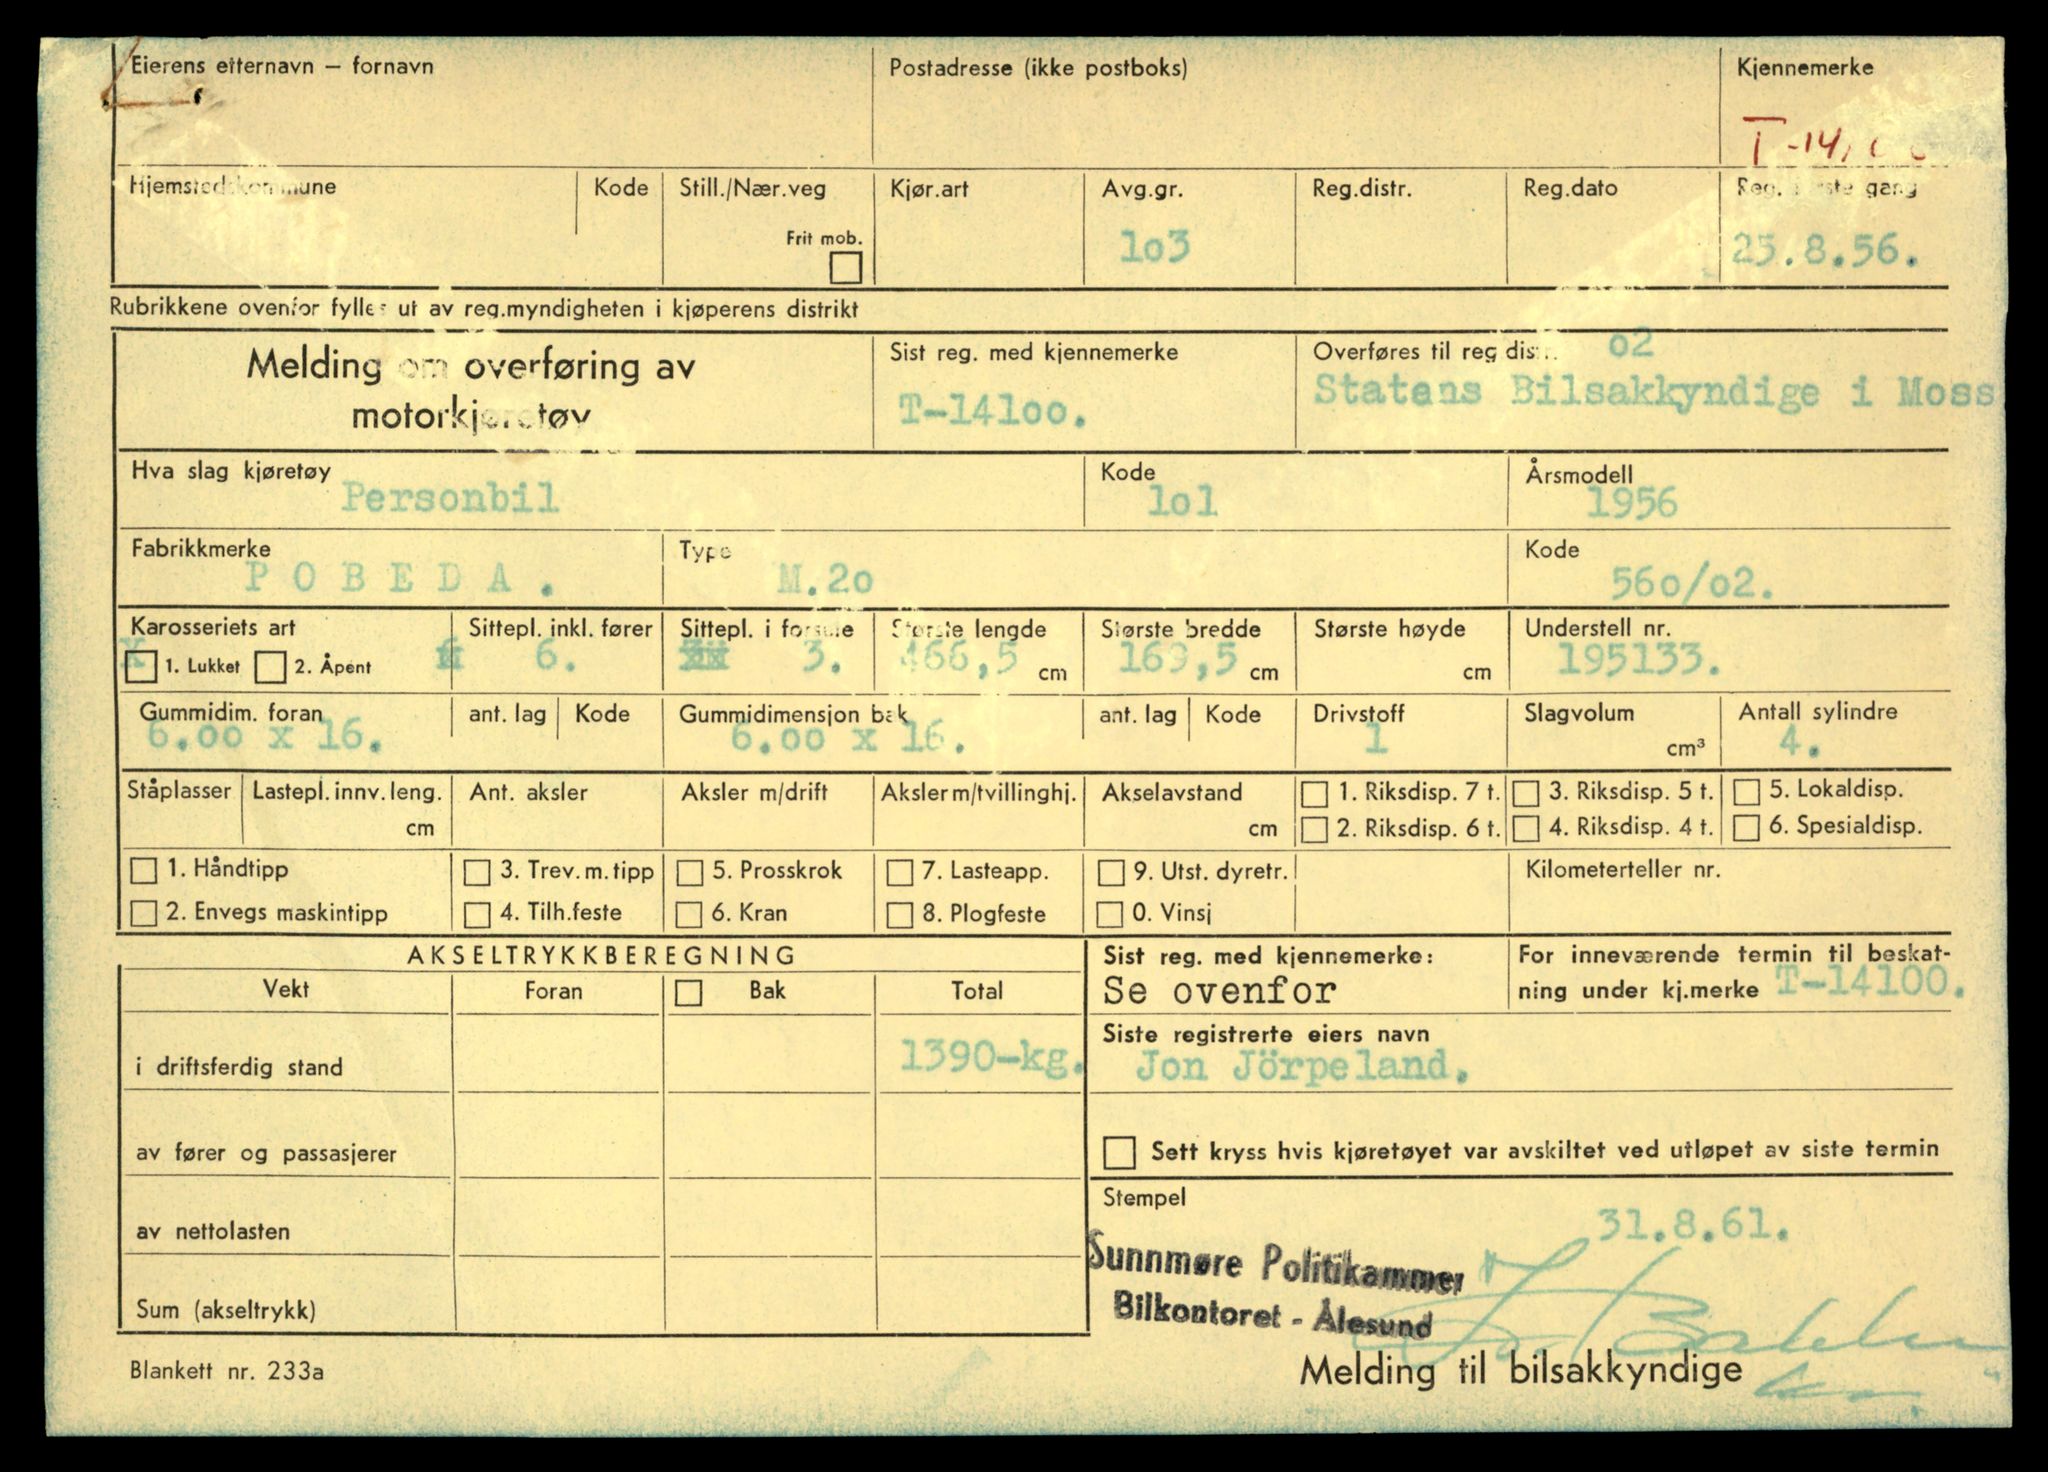 Eierens etternavn – fornavn Postadresse (ikke postboks) Kjennemerke
Hjemstedskommune Kode Still./Nær.veg Kjør.art Avg.gr. Reg.distr. Reg.dato Reg. første gang
Frit mob. lo3 25.8.56.
Rubrikkene ovenfor fylles ut av reg.myndigheten i kjøperens distrikt
Melding om overføring av
motorkjøretøy
Sist reg. med kjennemerke
T-14loo.
Overføres til reg.distr. o2
Statens Bilsakkyndige i Moss
Hva slag kjøretøy Kode Årsmodell
Personbil lol 1956
Fabrikkmerke Type Kode
P O B E D A . M.2o 56o/o2.
Karosseriets art Sittepl. inkl. fører Sittepl. i forsete Største lengde Største bredde Største høyde Understell nr.
X 1. Lukket 2. Åpent 6. 3. 466,5 cm 169,5 cm cm 195133.
Gummidim. foran ant. lag Kode Gummidimensjon bak ant. lag Kode Drivstoff Slagvolum Antall sylindre
6.00 x 16. 6.00 x 16. 1 cm³ 4.
Ståplasser Lastepl. innv. leng. Ant. aksler Aksler m/drift Aksler m/tvillinghj. Akselavstand 1. Riksdisp. 7 t. 3. Riksdisp. 5 t. 5. Lokaldisp.
cm cm 2. Riksdisp. 6 t. 4. Riksdisp. 4 t. 6. Spesialdisp.
1. Håndtipp 3. Trev. m. tipp 5. Prosskrok 7. Lasteapp. 9. Utst. dyretr. Kilometerteller nr.
2. Envegs maskintipp 4. Tilh.feste 6. Kran 8. Plogfeste 0. Vinsj
AKSELTRYKKBEREGNING
Vekt Foran Bak Total
i driftsferdig stand 1390-kg.
av fører og passasjerer
av nettolasten
Sum (akseltrykk)
Sist reg. med kjennemerke:
Se ovenfor
For inneværende termin til beskat-
ning under kj.merke T-14100.
Siste registrerte eiers navn
Jon Jörpeland.
Sett kryss hvis kjøretøyet var avskiltet ved utløpet av siste termin
Stempel
31.8.61.
Sunnmøre Politikammer
Bilkontoret - Ålesund
Blankett nr. 233a
Melding til bilsakkyndige